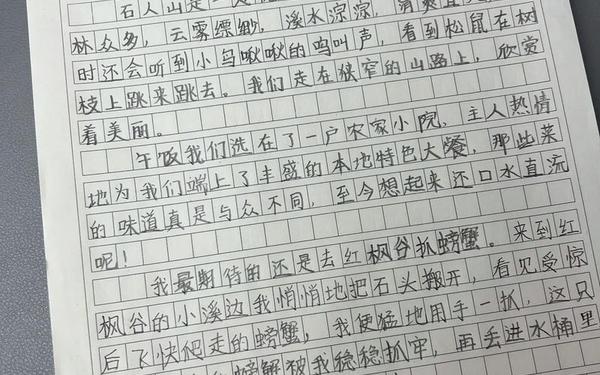 石人山是一
林众多，云雾缥缈，溪水淙淙，清爽
时还会听到小鸟啾啾的鸣叫声，看到松鼠在树
枝上跳来跳去。我们走在狭窄的山路上，欣赏
着美丽。
午饭我们选在了一户农家小院，主人热情
地为我们端上了丰盛的本地特色大餐，那些菜
的味道真是与众不同，至今想起来还口水直流
呢！
我最期待的还是去红枫谷抓螃蟹。来到红
枫谷的小溪边我悄悄地把石头搬开，看见受惊
后飞快爬走的螃蟹，我便猛地用手一抓，这只
螃蟹被我稳稳抓牢，再丢进水桶里